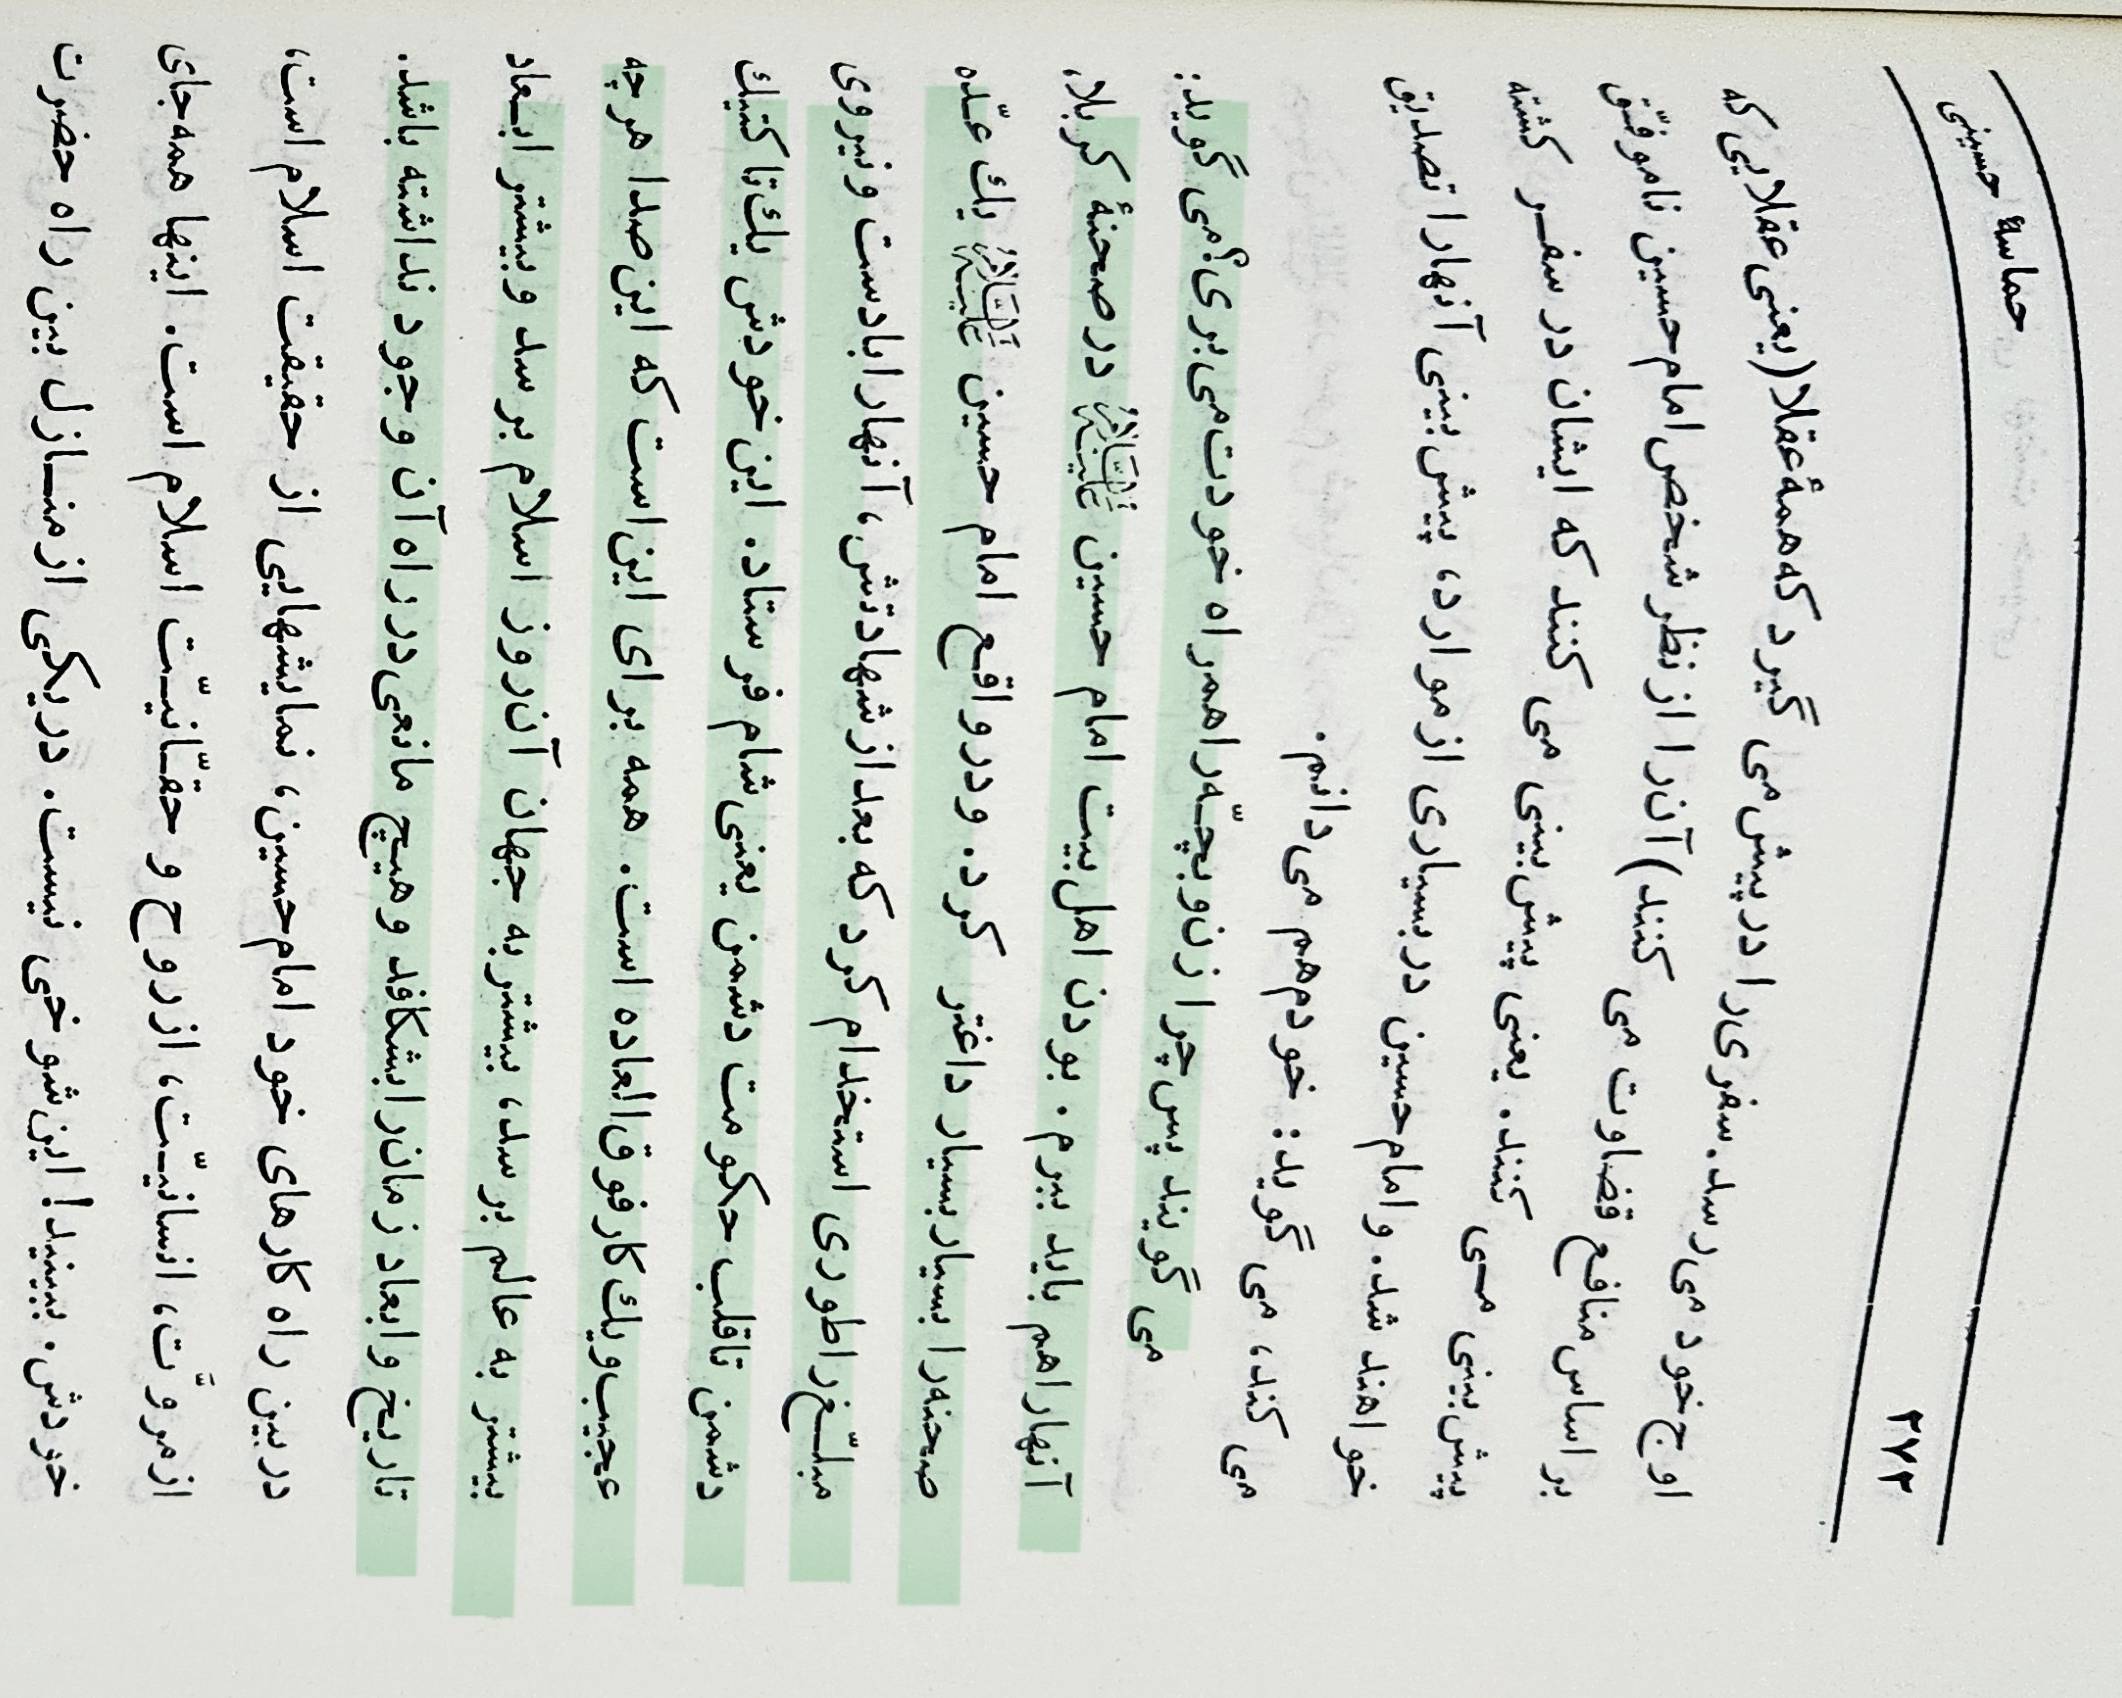 ۲۷۲ حماسهٔ حسینی
اوج خود می‌رسد. سفری را در پیش می گیرد که همهٔ عقلا (یعنی عقلایی که
بر اساس منافع قضاوت می کنند) آن را از نظر شخص امام حسین ناموفّق
پیش‌بینی می کنند. یعنی پیش‌بینی می کنند که ایشان در سفر کشته
خواهند شد. و امام حسین در بسیاری از موارد، پیش‌بینی آنها را تصدیق
می کند، می گوید: خودم هم می‌دانم.
می گویند پس چرا زن و بچّه را همراه خودت می‌بری؟ می گوید:
آنها را هم باید ببرم. بودن اهل بیت امام حسین علیه‌السلام در صحنهٔ کربلا،
صحنه را بسیار بسیار داغتر کرد. و در واقع امام حسین علیه‌السلام یك عدّه
مبلّغ را طوری استخدام کرد که بعد از شهادتش، آنها را با دست و نیروی
دشمن تا قلب حکومت دشمن یعنی شام فرستاد. این خودش یك تاکتیك
عجیب و یك کار فوق العاده است. همه برای این است که این صدا هر چه
بیشتر به عالم برسد، بیشتر به جهان آن روز اسلام برسد و بیشتر ابعاد
تاریخ و ابعاد زمان را بشکافد و هیچ مانعی در راه آن وجود نداشته باشد.
در بین راه کارهای خود امام حسین، نمایشهایی از حقیقت اسلام است،
از مروّت، انسانیّت، از روح و حقّانیّت اسلام است. اینها همه جای
خودش. ببینید! این شوخی نیست. در یکی از منازل بین راه حضرت